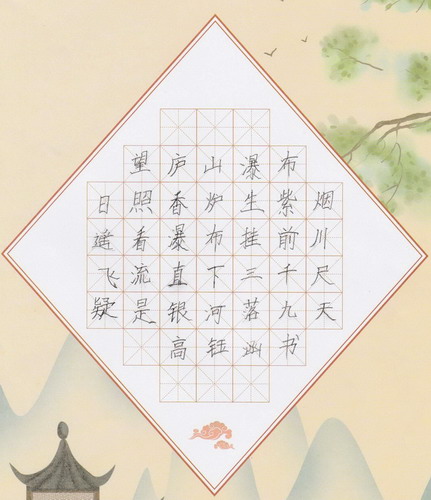 望庐山瀑布
日照香炉生紫烟
遥看瀑布挂前川
飞流直下三千尺
疑是银河落九天
高钰书